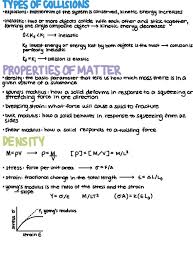 TYPES OF COLLISIONS
• explosion: momentum of the system is conserved, kinetic energy increases
• inelastic: two or more objects collide with each other and stick together,
forming one single composite object → kinetic energy decreases
→ inelastic
→ collision is elastic
PROPERTIES OF MATTER
• density: the basic parameter that tells us how much mass there is in a
given volume of a substance
• young's modulus: how a solid deforms in response to a squeezing or
stretching force in one direction
• breaking stress: what force will cause a solid to fracture
• bulk modulus: how a solid behaves in response to squeezing from all
sides
• shear modulus: how a solid responds to a twisting force
DENSITY
M = ρV → ρ = M/V [ρ] = [M/V] = M/L³
• stress: force per unit area → σ = F/A
• strain: fractional change in the total length → ε = ΔL/L₀
• young's modulus is the ratio of the stress and the strain
Y = σ/ε M/LT² (σA) = k(εL₀)
young's modulus
strain ε